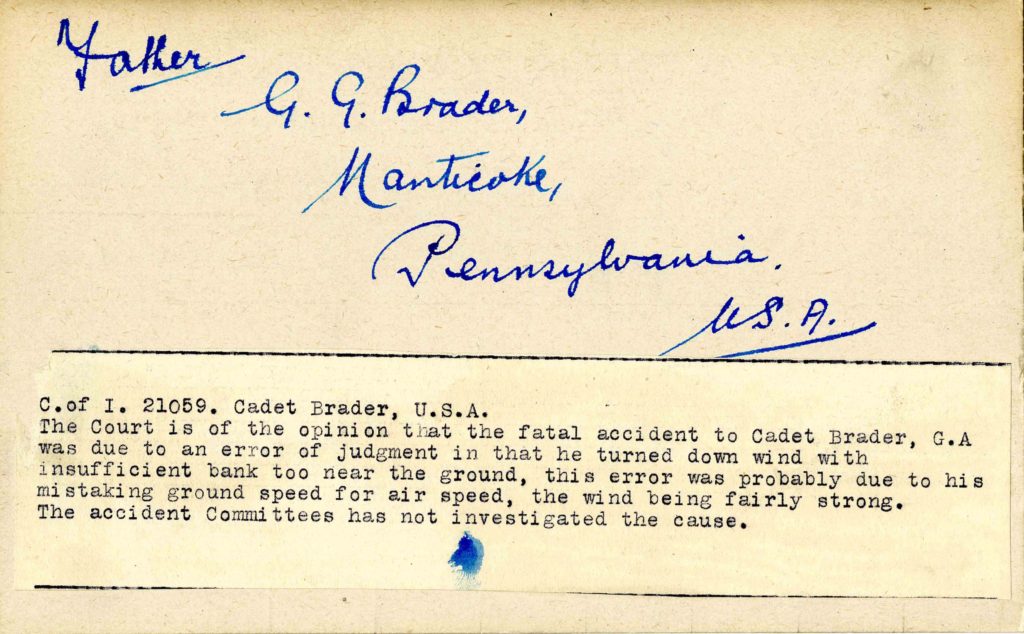 Father
G. G. Brader,
Nanticoke,
Pennsylvania.
U.S.A.
C.of I. 21059. Cadet Brader, U.S.A.
The Court is of the opinion that the fatal accident to Cadet Brader, G.A
was due to an error of judgment in that he turned down wind with
insufficient bank too near the ground, this error was probably due to his
mistaking ground speed for air speed, the wind being fairly strong.
The accident Committees has not investigated the cause.